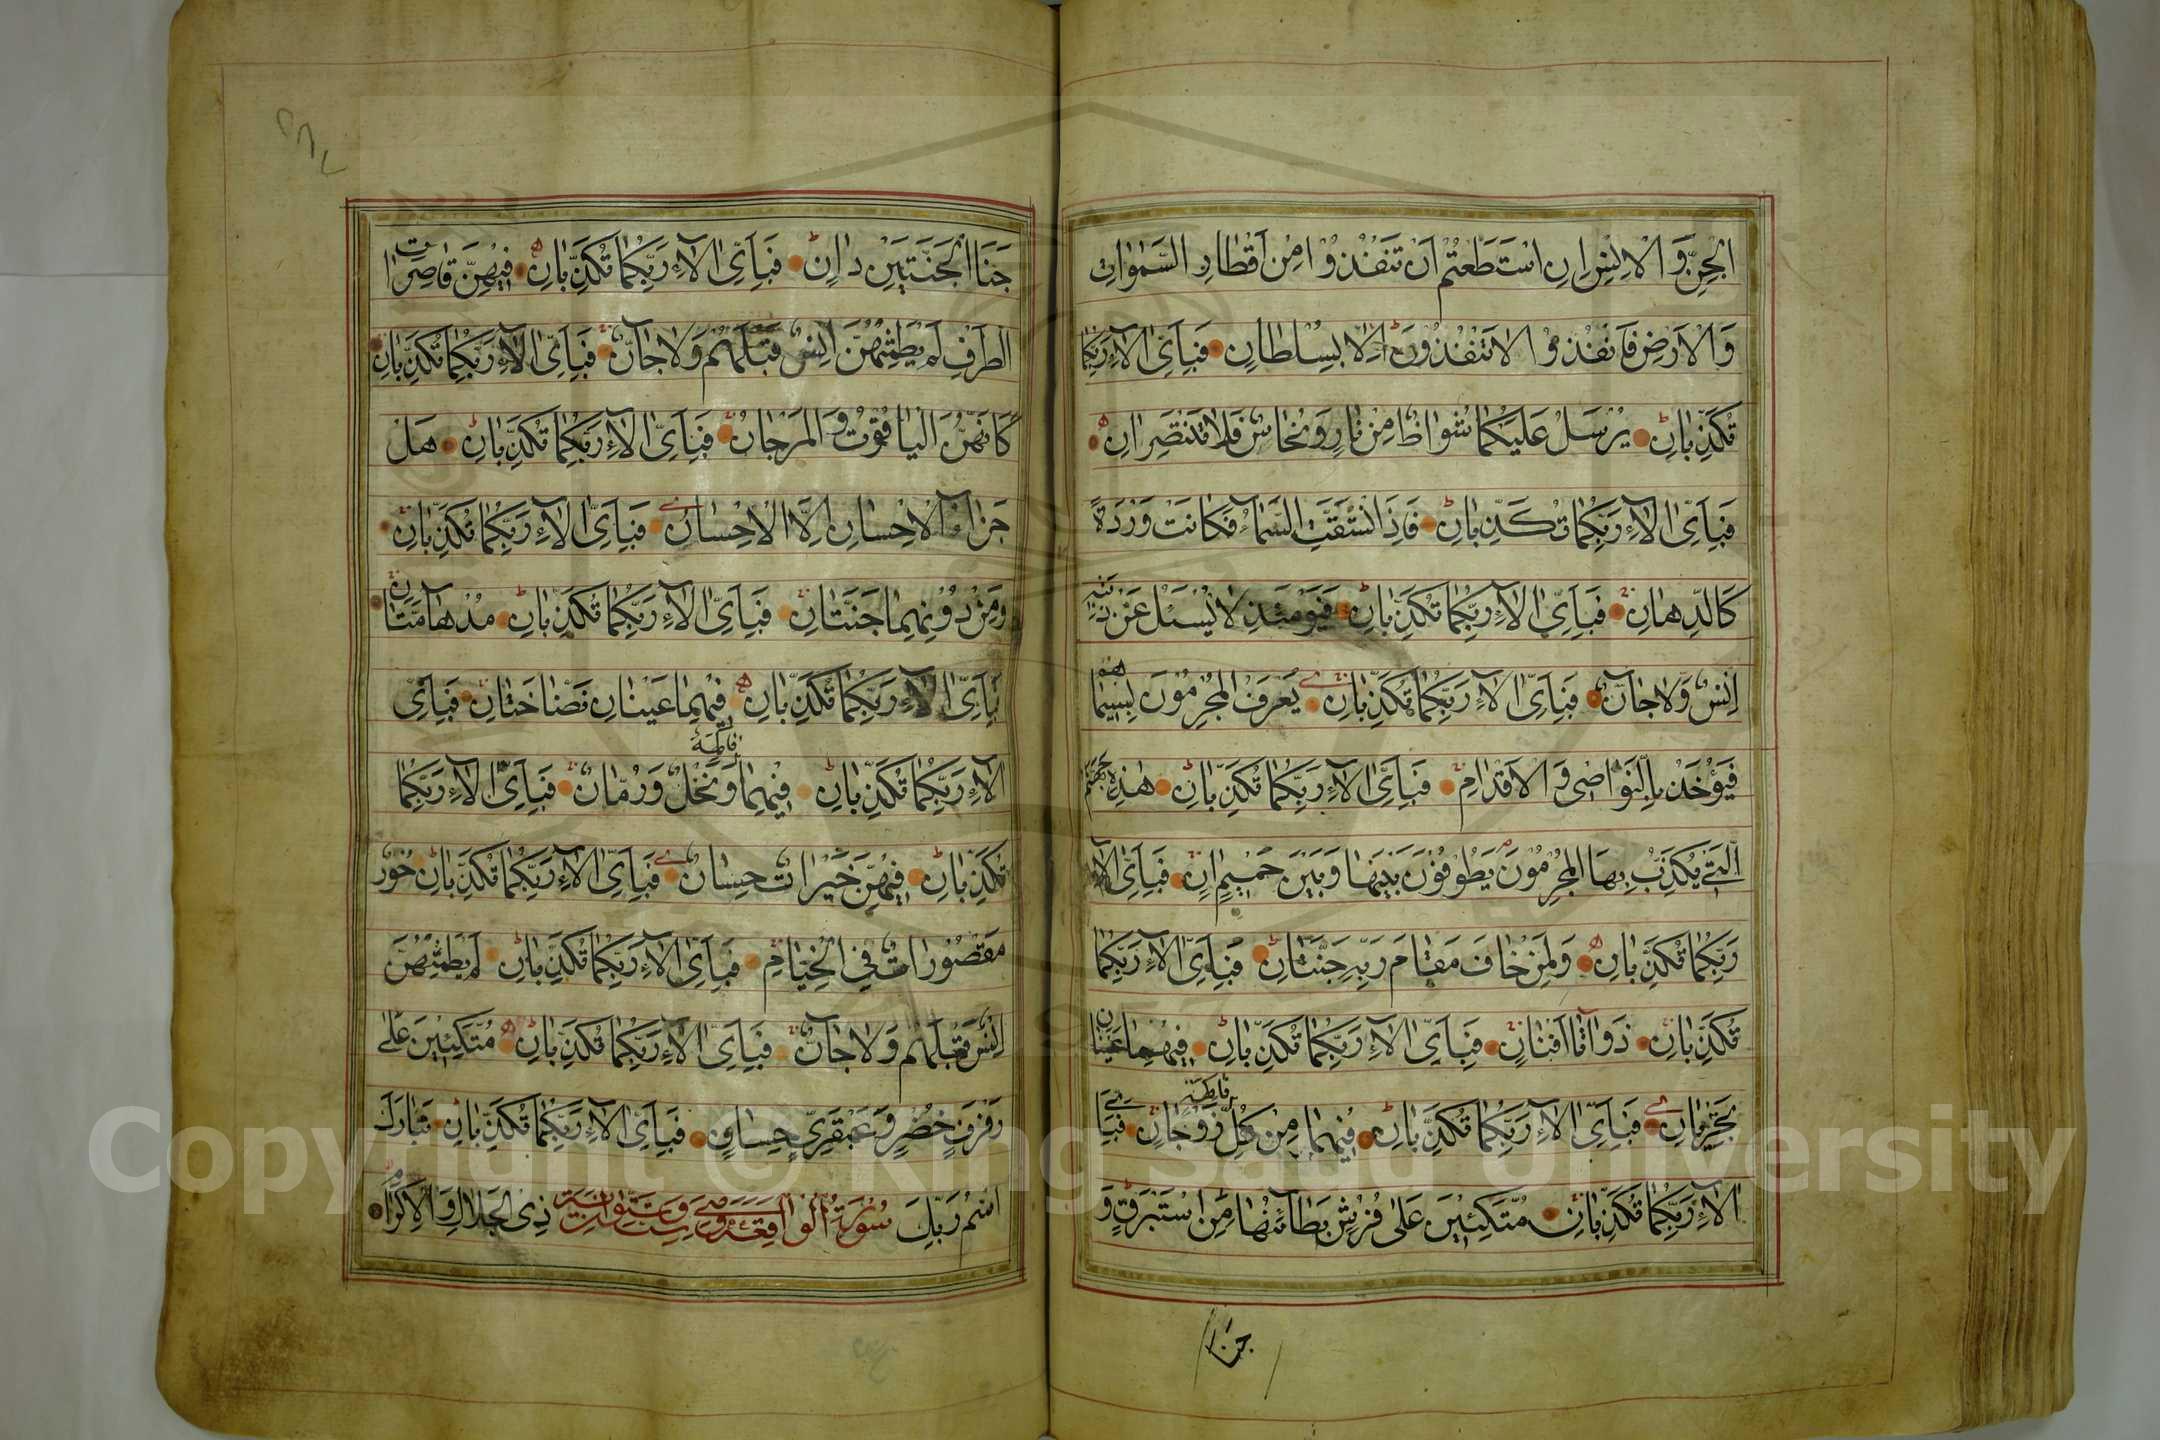 الجِنِّ وَالاِنْسِ اِنِ اسْتَطَعْتُمْ اَنْ تَنْفُذُوْا مِنْ اَقْطَارِ السَّمٰوَاتِ
وَالْاَرْضِ فَانْفُذُوْا لَا تَنْفُذُوْنَ اِلَّا بِسُلْطَانٍ فَبِاَيِّ اٰلَاءِ رَبِّكُمَا
تُكَذِّبَانِ يُرْسَلُ عَلَيْكُمَا شُوَاظٌ مِنْ نَارٍ وَنُحَاسٌ فَلَا تَنْتَصِرَانِ
فَبِاَيِّ اٰلَاءِ رَبِّكُمَا تُكَذِّبَانِ فَاِذَا انْشَقَّتِ السَّمَاءُ فَكَانَتْ وَرْدَةً
كَالدِّهَانِ فَبِاَيِّ اٰلَاءِ رَبِّكُمَا تُكَذِّبَانِ فَيَوْمَئِذٍ لَا يُسْئَلُ عَنْ ذَنْبِهِ
اِنْسٌ وَلَا جَانٌّ فَبِاَيِّ اٰلَاءِ رَبِّكُمَا تُكَذِّبَانِ يُعْرَفُ الْمُجْرِمُوْنَ بِسِيْمَاهُمْ
فَيُؤْخَذُ بِالنَّوَاصِي وَالْاَقْدَامِ فَبِاَيِّ اٰلَاءِ رَبِّكُمَا تُكَذِّبَانِ هٰذِهِ جَهَنَّمُ
الَّتِي يُكَذِّبُ بِهَا الْمُجْرِمُوْنَ يَطُوْفُوْنَ بَيْنَهَا وَبَيْنَ حَمِيْمٍ اٰنٍ فَبِاَيِّ اٰلَاءِ
رَبِّكُمَا تُكَذِّبَانِ وَلِمَنْ خَافَ مَقَامَ رَبِّهِ جَنَّتَانِ فَبِاَيِّ اٰلَاءِ رَبِّكُمَا
تُكَذِّبَانِ ذَوَاتَا اَفْنَانٍ فَبِاَيِّ اٰلَاءِ رَبِّكُمَا تُكَذِّبَانِ فِيْهِمَا عَيْنَانِ
تَجْرِيَانِ فَبِاَيِّ اٰلَاءِ رَبِّكُمَا تُكَذِّبَانِ فِيْهِمَا مِنْ كُلِّ فَاكِهَةٍ زَوْجَانِ فَبِاَيِّ
اٰلَاءِ رَبِّكُمَا تُكَذِّبَانِ مُتَّكِئِيْنَ عَلٰى فُرُشٍ بَطَائِنُهَا مِنْ اِسْتَبْرَقٍ وَ
جَنَا
جَنَا الْجَنَّتَيْنِ دَانٍ فَبِاَيِّ اٰلَاءِ رَبِّكُمَا تُكَذِّبَانِ فِيْهِنَّ قَاصِرَاتُ
الطَّرْفِ لَمْ يَطْمِثْهُنَّ اِنْسٌ قَبْلَهُمْ وَلَا جَانٌّ فَبِاَيِّ اٰلَاءِ رَبِّكُمَا تُكَذِّبَانِ
كَاَنَّهُنَّ الْيَاقُوْتُ وَالْمَرْجَانُ فَبِاَيِّ اٰلَاءِ رَبِّكُمَا تُكَذِّبَانِ هَلْ
جَزَاءُ الْاِحْسَانِ اِلَّا الْاِحْسَانُ فَبِاَيِّ اٰلَاءِ رَبِّكُمَا تُكَذِّبَانِ
وَمِنْ دُوْنِهِمَا جَنَّتَانِ فَبِاَيِّ اٰلَاءِ رَبِّكُمَا تُكَذِّبَانِ مُدْهَامَّتَانِ
فَبِاَيِّ اٰلَاءِ رَبِّكُمَا تُكَذِّبَانِ فِيْهِمَا عَيْنَانِ نَضَّاخَتَانِ فَبِاَيِّ
اٰلَاءِ رَبِّكُمَا تُكَذِّبَانِ فِيْهِمَا فَاكِهَةٌ وَنَخْلٌ وَرُمَّانٌ فَبِاَيِّ اٰلَاءِ رَبِّكُمَا
تُكَذِّبَانِ فِيْهِنَّ خَيْرَاتٌ حِسَانٌ فَبِاَيِّ اٰلَاءِ رَبِّكُمَا تُكَذِّبَانِ حُوْرٌ
مَقْصُوْرَاتٌ فِي الْخِيَامِ فَبِاَيِّ اٰلَاءِ رَبِّكُمَا تُكَذِّبَانِ لَمْ يَطْمِثْهُنَّ
اِنْسٌ قَبْلَهُمْ وَلَا جَانٌّ فَبِاَيِّ اٰلَاءِ رَبِّكُمَا تُكَذِّبَانِ مُتَّكِئِيْنَ عَلٰى
رَفْرَفٍ خُضْرٍ وَعَبْقَرِيٍّ حِسَانٍ فَبِاَيِّ اٰلَاءِ رَبِّكُمَا تُكَذِّبَانِ تَبَارَكَ
اسْمُ رَبِّكَ سُوْرَةُ الْوَاقِعَةِ ذِي الْجَلَالِ وَالْاِكْرَامِ
Copyright © King Saud University